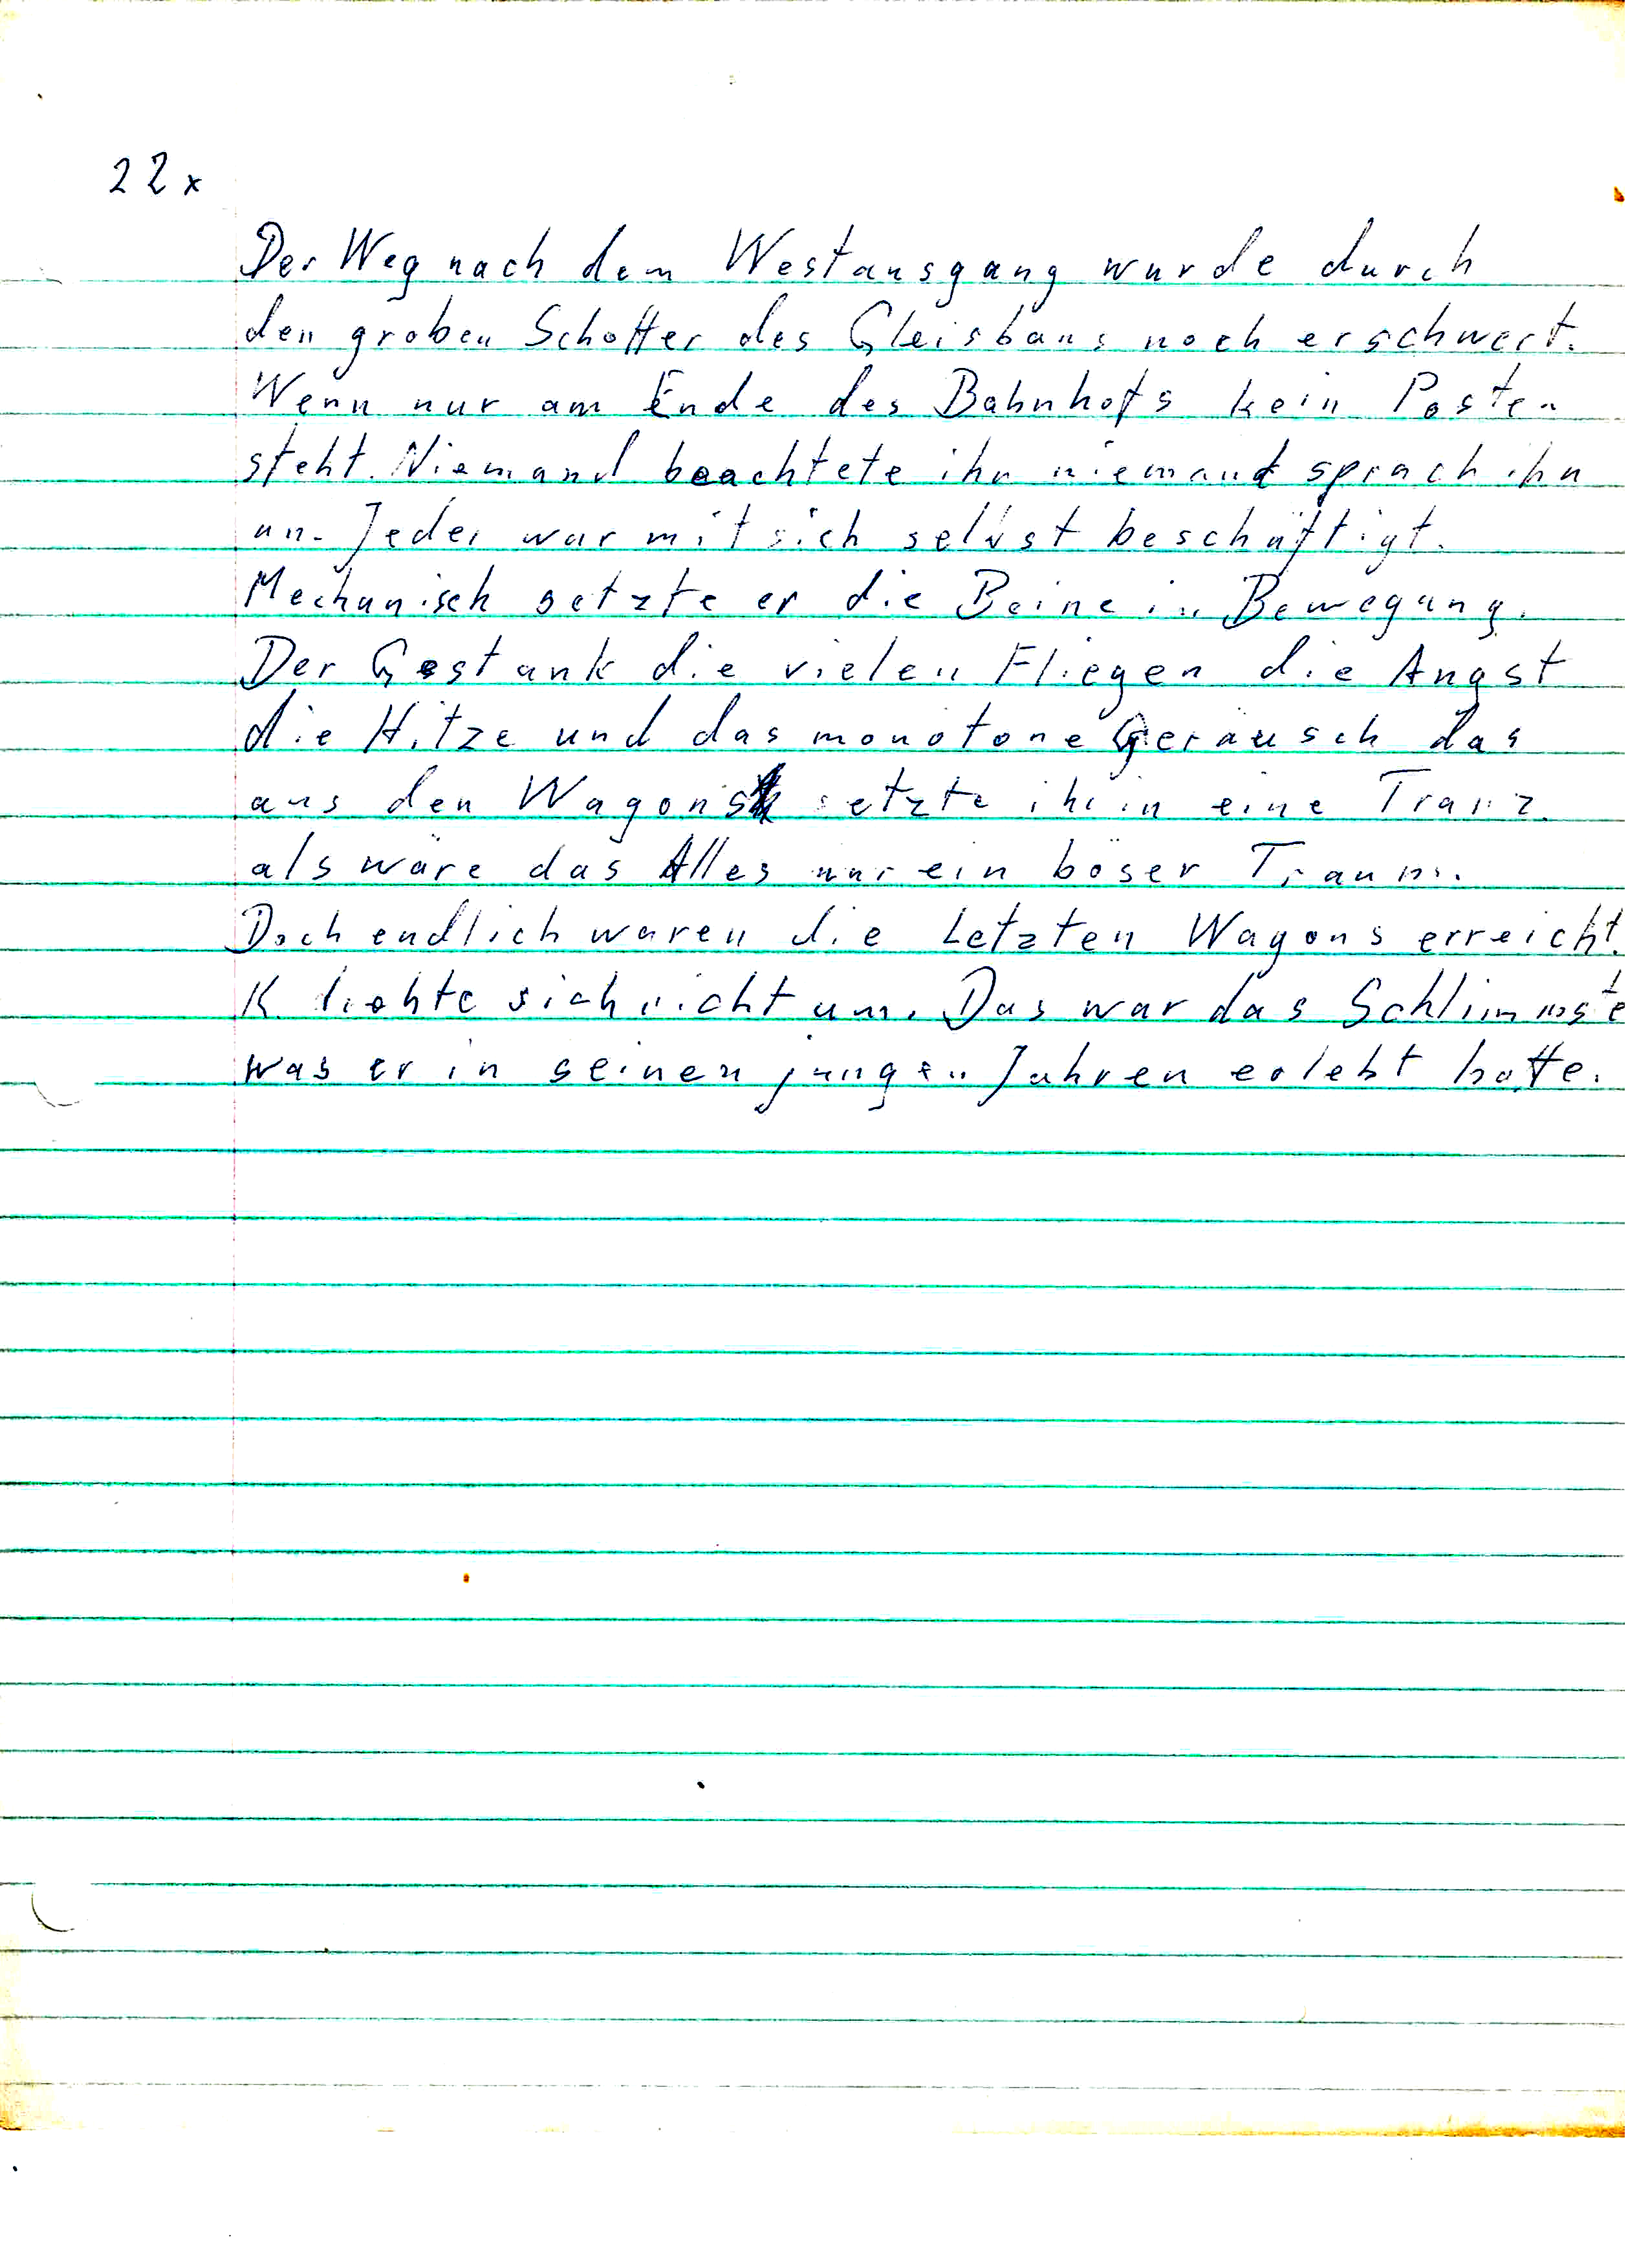 22x
Der Weg nach dem Westausgang wurde durch
den groben Schotter des Gleisbaus noch erschwert.
Wenn nur am Ende des Bahnhofs kein Posten
steht. Niemand beachtete ihn niemand sprach ihn
an. Jeder war mit sich selbst beschäftigt.
Mechanisch setzte er die Beine in Bewegung.
Der Gestank die vielen Fliegen die Angst
die Hitze und das monotone Geräusch das
aus den Wagons setzte ihn in eine Tranz
als wäre das Alles nur ein böser Traum.
Doch endlich waren die Letzten Wagons erreicht.
K. drehte sich nicht um. Das war das Schlimmste
was er in seinen jungen Jahren erlebt hatte.